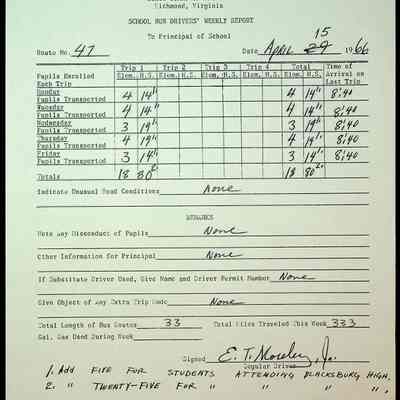 Richmond, Virginia
SCHOOL BUS DRIVERS' WEEKLY REPORT
To Principal of School
15
Route No. 47 Date April 29 1966
Trip 1 Trip 2 Trip 3 Trip 4 Total Time of
Pupils Enrolled Elem. H.S. Elem. H.S. Elem. H.S. Elem. H.S. Elem. H.S. Arrival on
Each Trip Last Trip
Monday
Pupils Transported 4 14 4 14 8:40
Tuesday
Pupils Transported 4 14 4 14 8:40
Wednesday
Pupils Transported 3 19 3 19 8:40
Thursday
Pupils Transported 4 19 4 19 8:40
Friday
Pupils Transported 3 14 3 14 8:40
Totals 18 80 18 80
Indicate Unusual Road Conditions None
REMARKS
Note any Misconduct of Pupils None
Other Information for Principal None
If Substitute Driver Used, Give Name and Driver Permit Number None
Give Object of any Extra Trip Made None
Total Length of Bus Routes 33 Total Miles Traveled This Week 333
Gal. Gas Used During Week
Signed E. T. Moseley, Jr.
Regular Driver
1. Add FIVE FOR STUDENTS ATTENDING BLACKSBURG HIGH.
2. " TWENTY-FIVE FOR " " " "